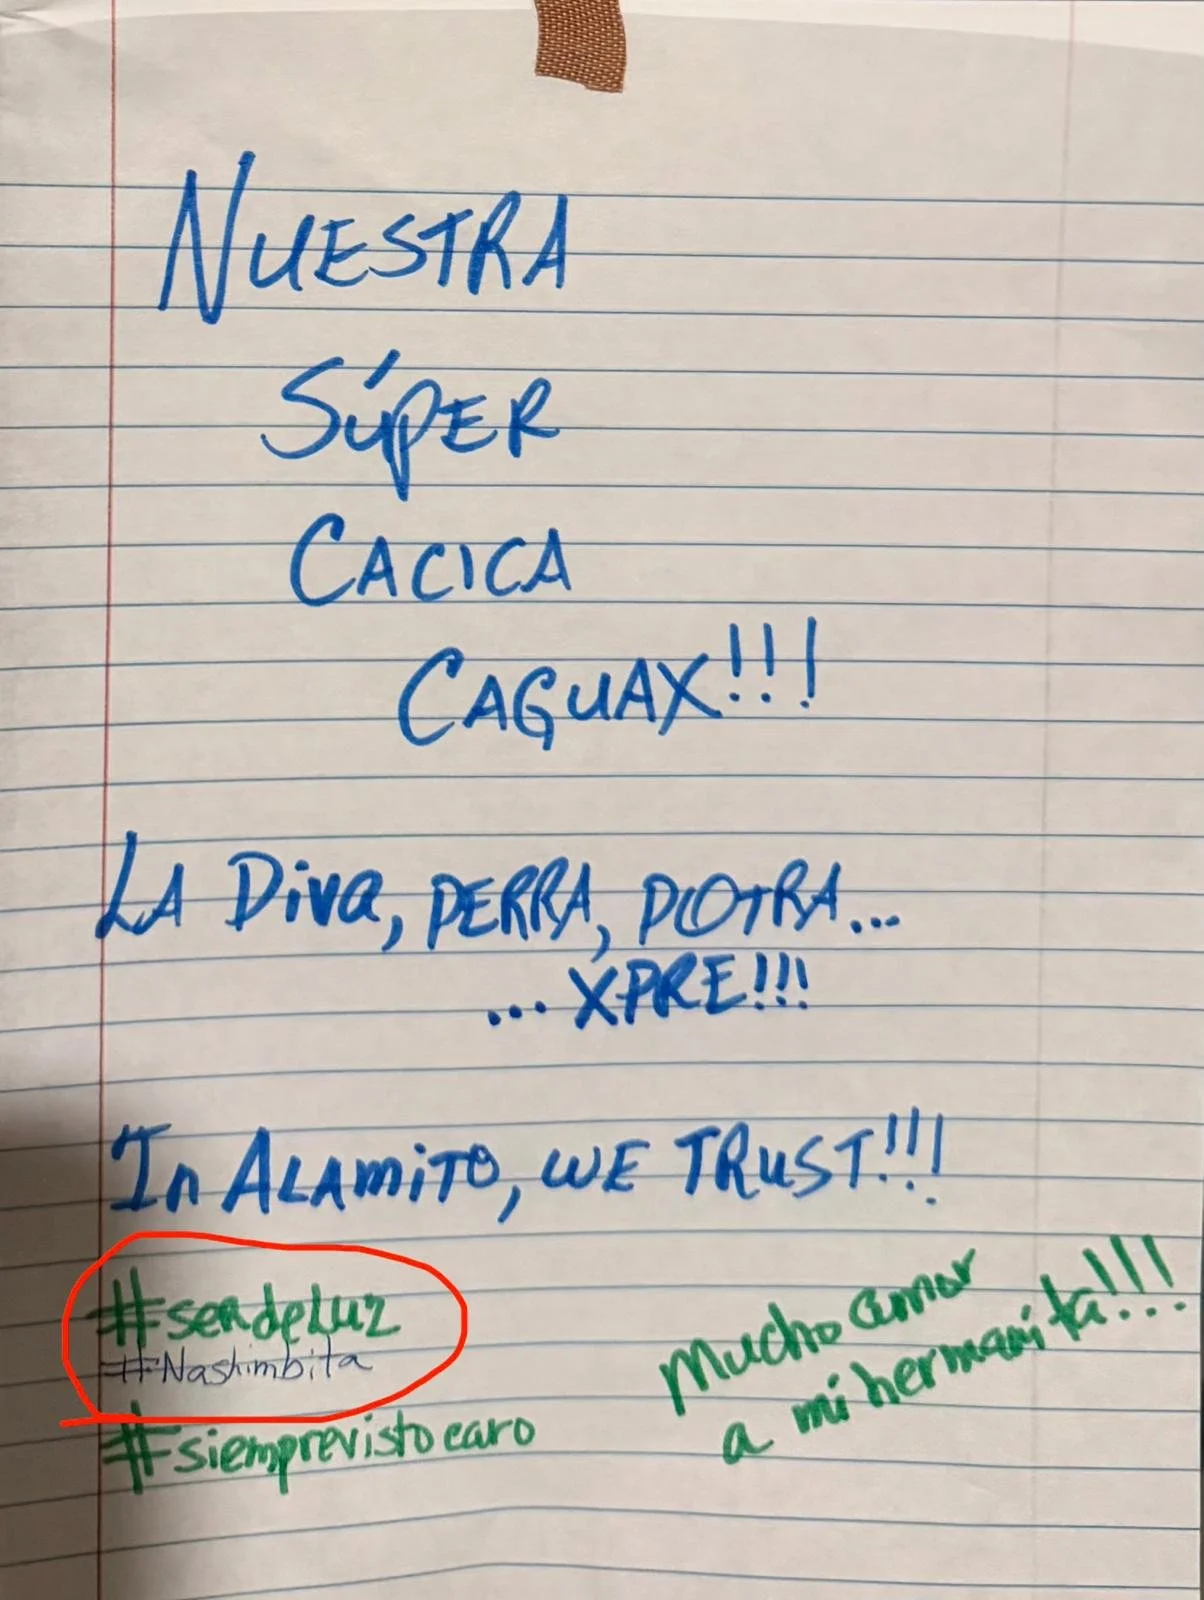 NUESTRA
SÚPER
CACICA
CAGUAX!!!
LA Diva, PERRA, POTRA...
... XPRE!!!
In ALAMITO, WE TRUST!!!
#serdeluz
#Nashimbita
#siemprevistocaro
Mucho amor
a mi hermanita!!!